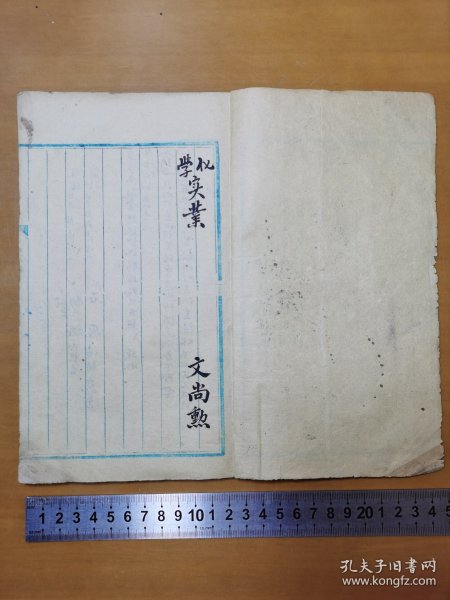 化學
实業
文尚勲
1 2 3 4 5 6 7 8 9 10 1 2 3 4 5 6 7 8 9 20 1 2 3 4 5
孔夫子旧书网
www.kongfz.com